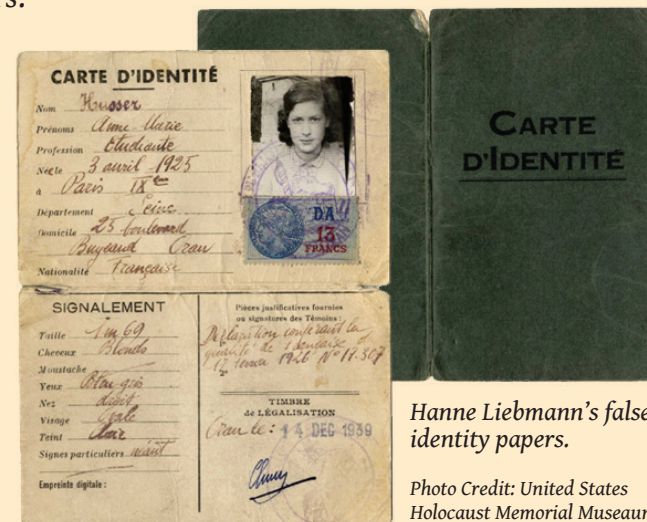 rs.
CARTE D'IDENTITÉ
Nom Husser
Prénoms Anne-Marie
Profession Etudiante
Née le 3 avril 1925
à Paris IXe
Département Seine
Domicile 25 boulevard
Bugeaud Oran
Nationalité Française
DA
13
FRANCS
SIGNALEMENT
Taille 1m69
Cheveux Blonds
Moustache
Yeux Bleu gris
Nez droit
Visage Ovale
Teint Clair
Signes particuliers néant
Empreinte digitale :
Pièces justificatives fournies
ou signatures des Témoins :
Déclaration conférant la
qualité de Française
1926 No 11.307
TIMBRE
de LÉGALISATION
Oran le : 14 DEC 1939
CARTE
D'IDENTITÉ
Hanne Liebmann's false
identity papers.
Photo Credit: United States
Holocaust Memorial Museaum